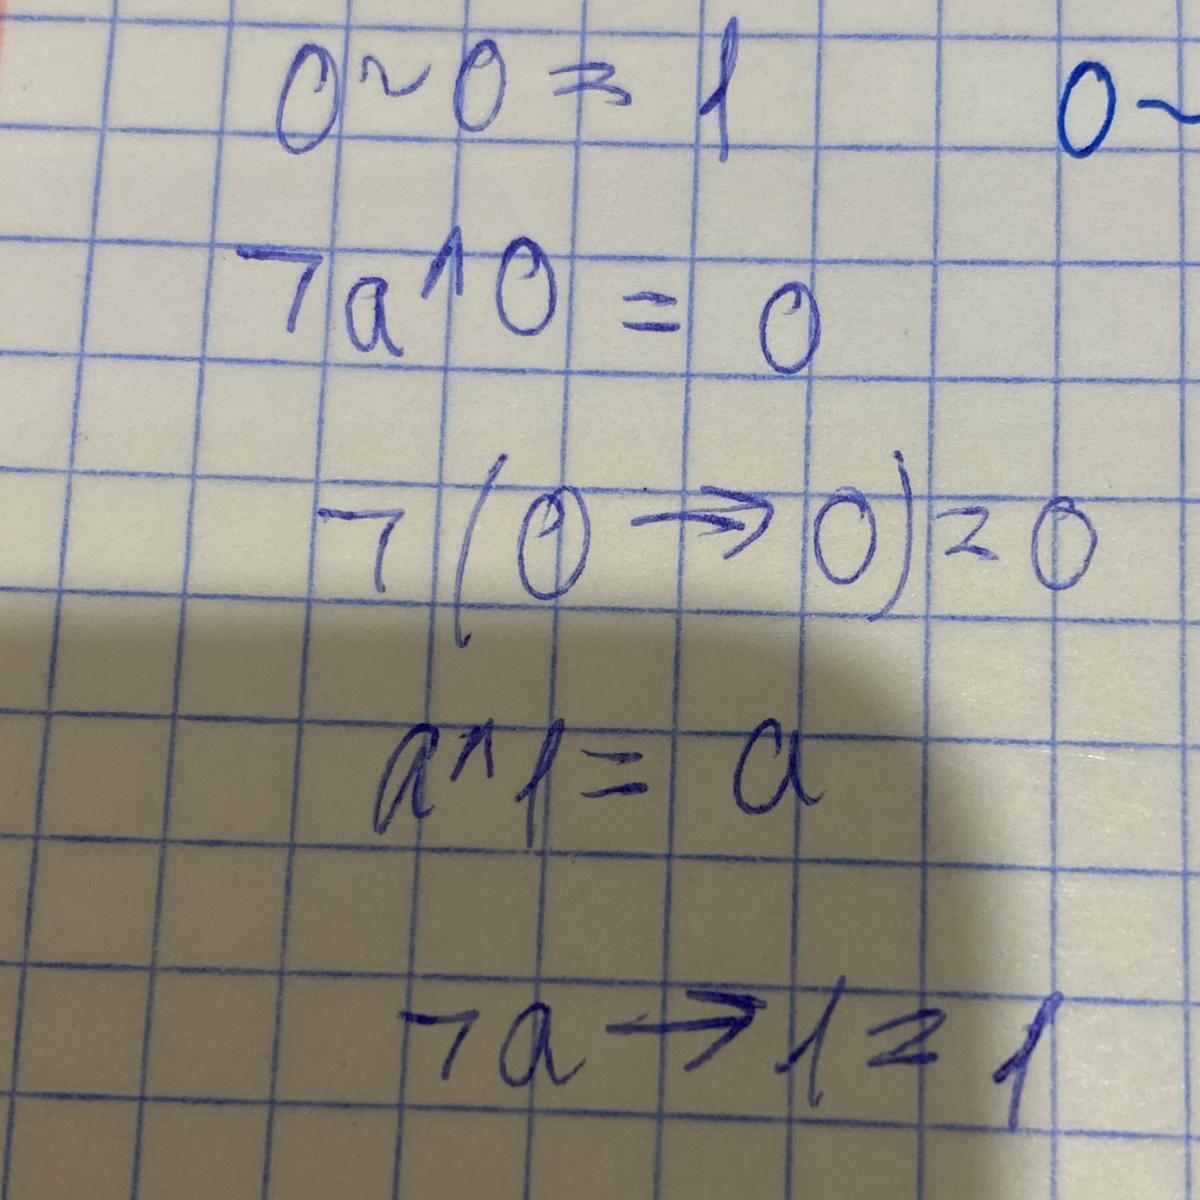 0 ~ 0 = 1 0 ~
¬a ^ 0 = 0
¬(0 → 0) = 0
a ^ 1 = a
¬a → 1 = 1